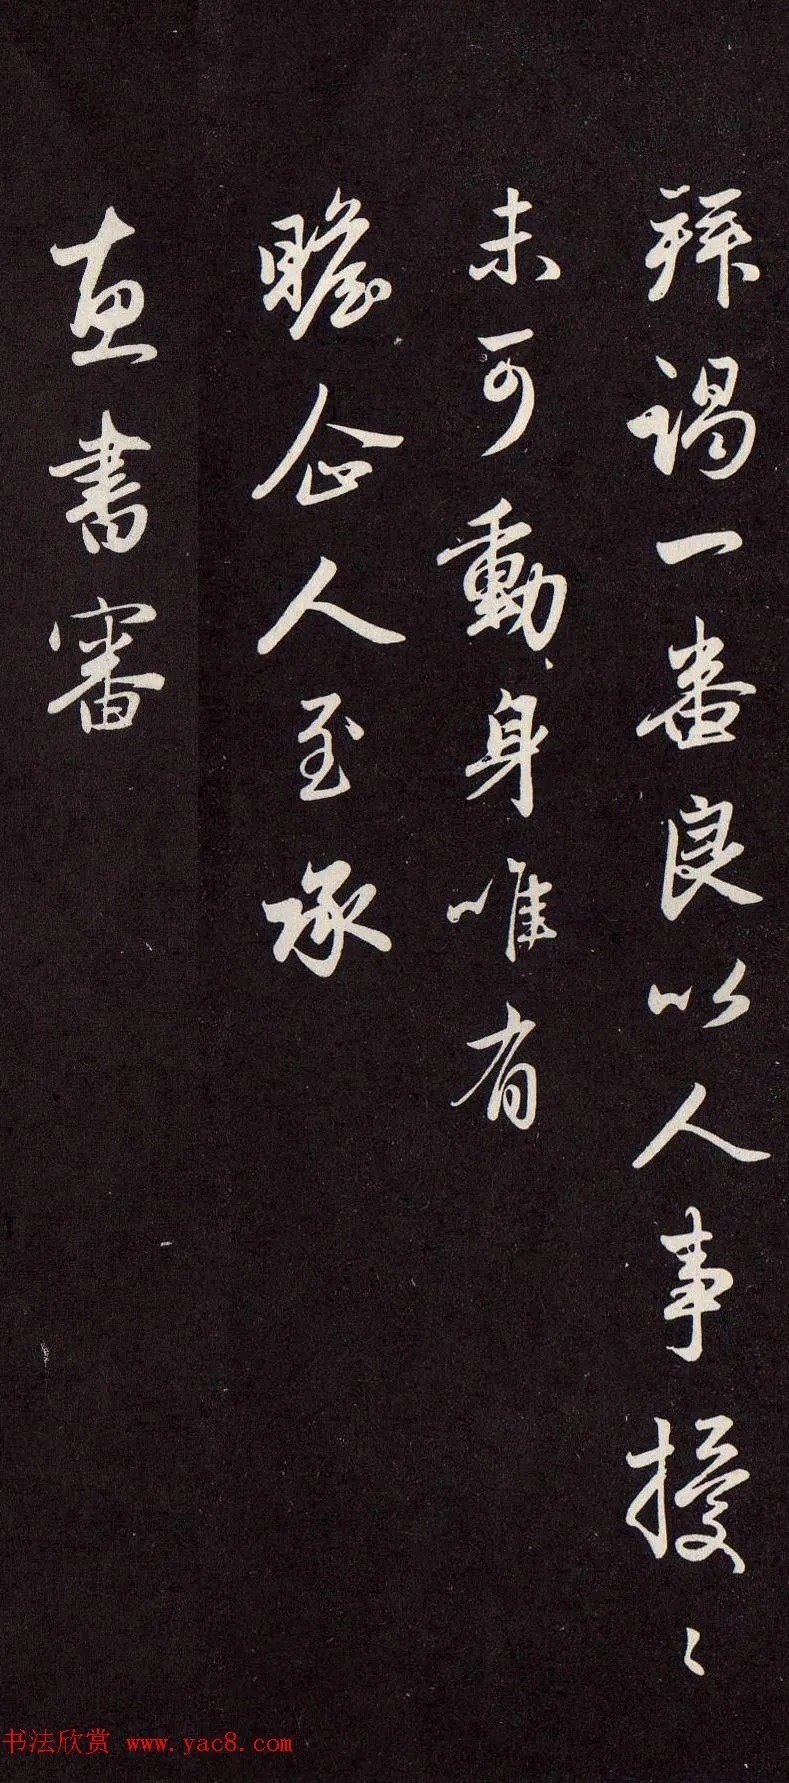 拜謁一番良以人事擾〻
未可動身唯有
瞻企人至承
惠書審
书法欣赏 www.yac8.com